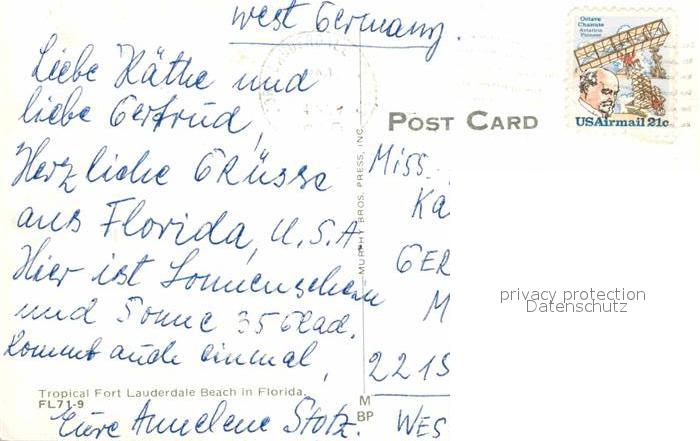 West Germany.
Liebe Käthe und
liebe Gertrud,
Herzliche Grüsse
aus Florida, U.S.A
Hier ist Sonnenschein
und Sonne 35 Grad.
Kommt auch einmal,
Tropical Fort Lauderdale Beach in Florida.
FL71-9
Eure Annelene Stotz.
MURPHY BROS. PRESS, INC.
M
BP
POST CARD
Octave
Chanute
Aviation
Pioneer
USAirmail 21c
Miss.
Kä
GER
M
221S
WES
privacy protection
Datenschutz